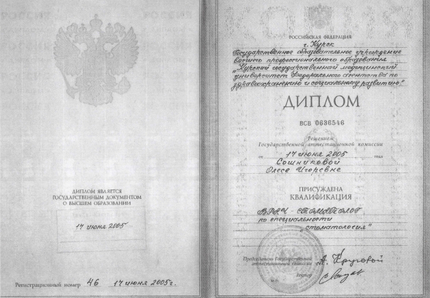 ДИПЛОМ ЯВЛЯЕТСЯ
ГОСУДАРСТВЕННЫМ ДОКУМЕНТОМ
О ВЫСШЕМ ОБРАЗОВАНИИ
14 июня 2005
Регистрационный номер 46 14 июня 2005г.
РОССИЙСКАЯ ФЕДЕРАЦИЯ
г. Курск
Государственное образовательное учреждение
высшего профессионального образования
"Курский государственный медицинский
университет Федерального агентства по
здравоохранению и социальному развитию"
ДИПЛОМ
ВСВ 0636546
Решением
Государственной аттестационной комиссии
от 14 июня 2005
Олесе Игоревне
ПРИСУЖДЕНА
КВАЛИФИКАЦИЯ
ВРАЧ СТОМАТОЛОГ
по специальности
"стоматология"
Председатель Государственной
аттестационной комиссии
Ректор